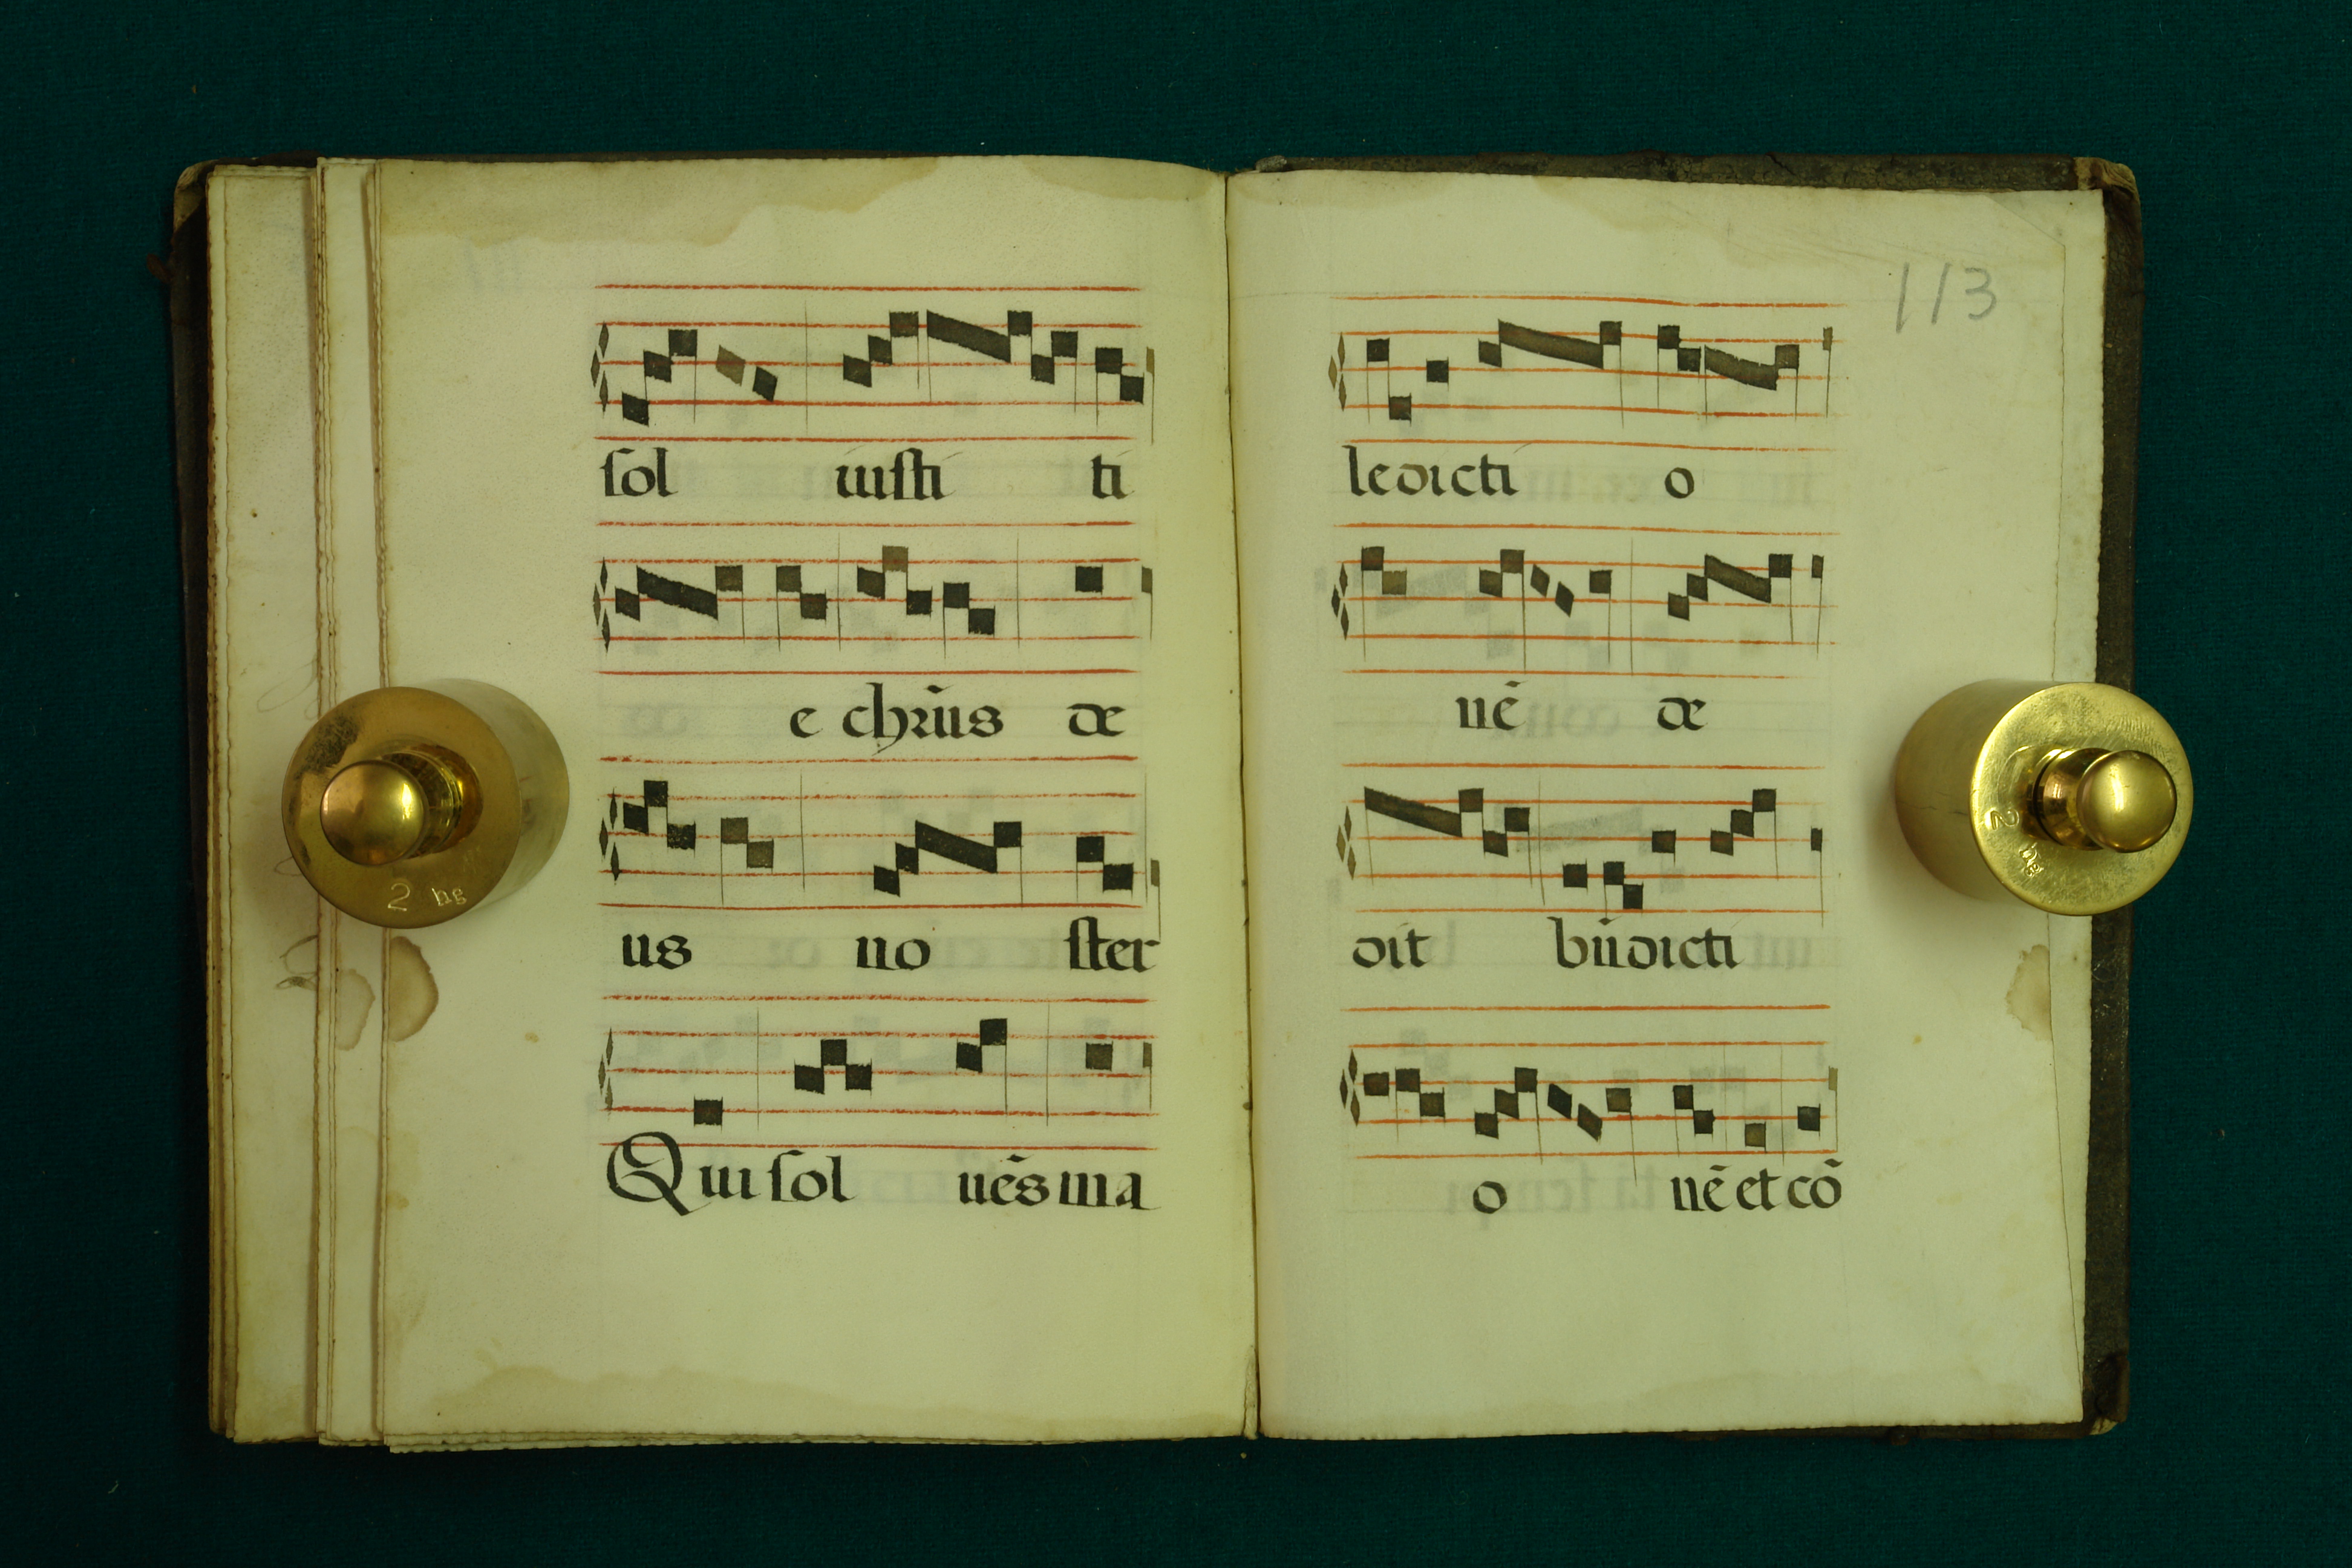 sol uisti ti
e chr̄us de
us no ster
Qui sol uēs ma
113
ledicti o
nē de
dit bn̄dicti
o nē et cō
2 hg
2 hg